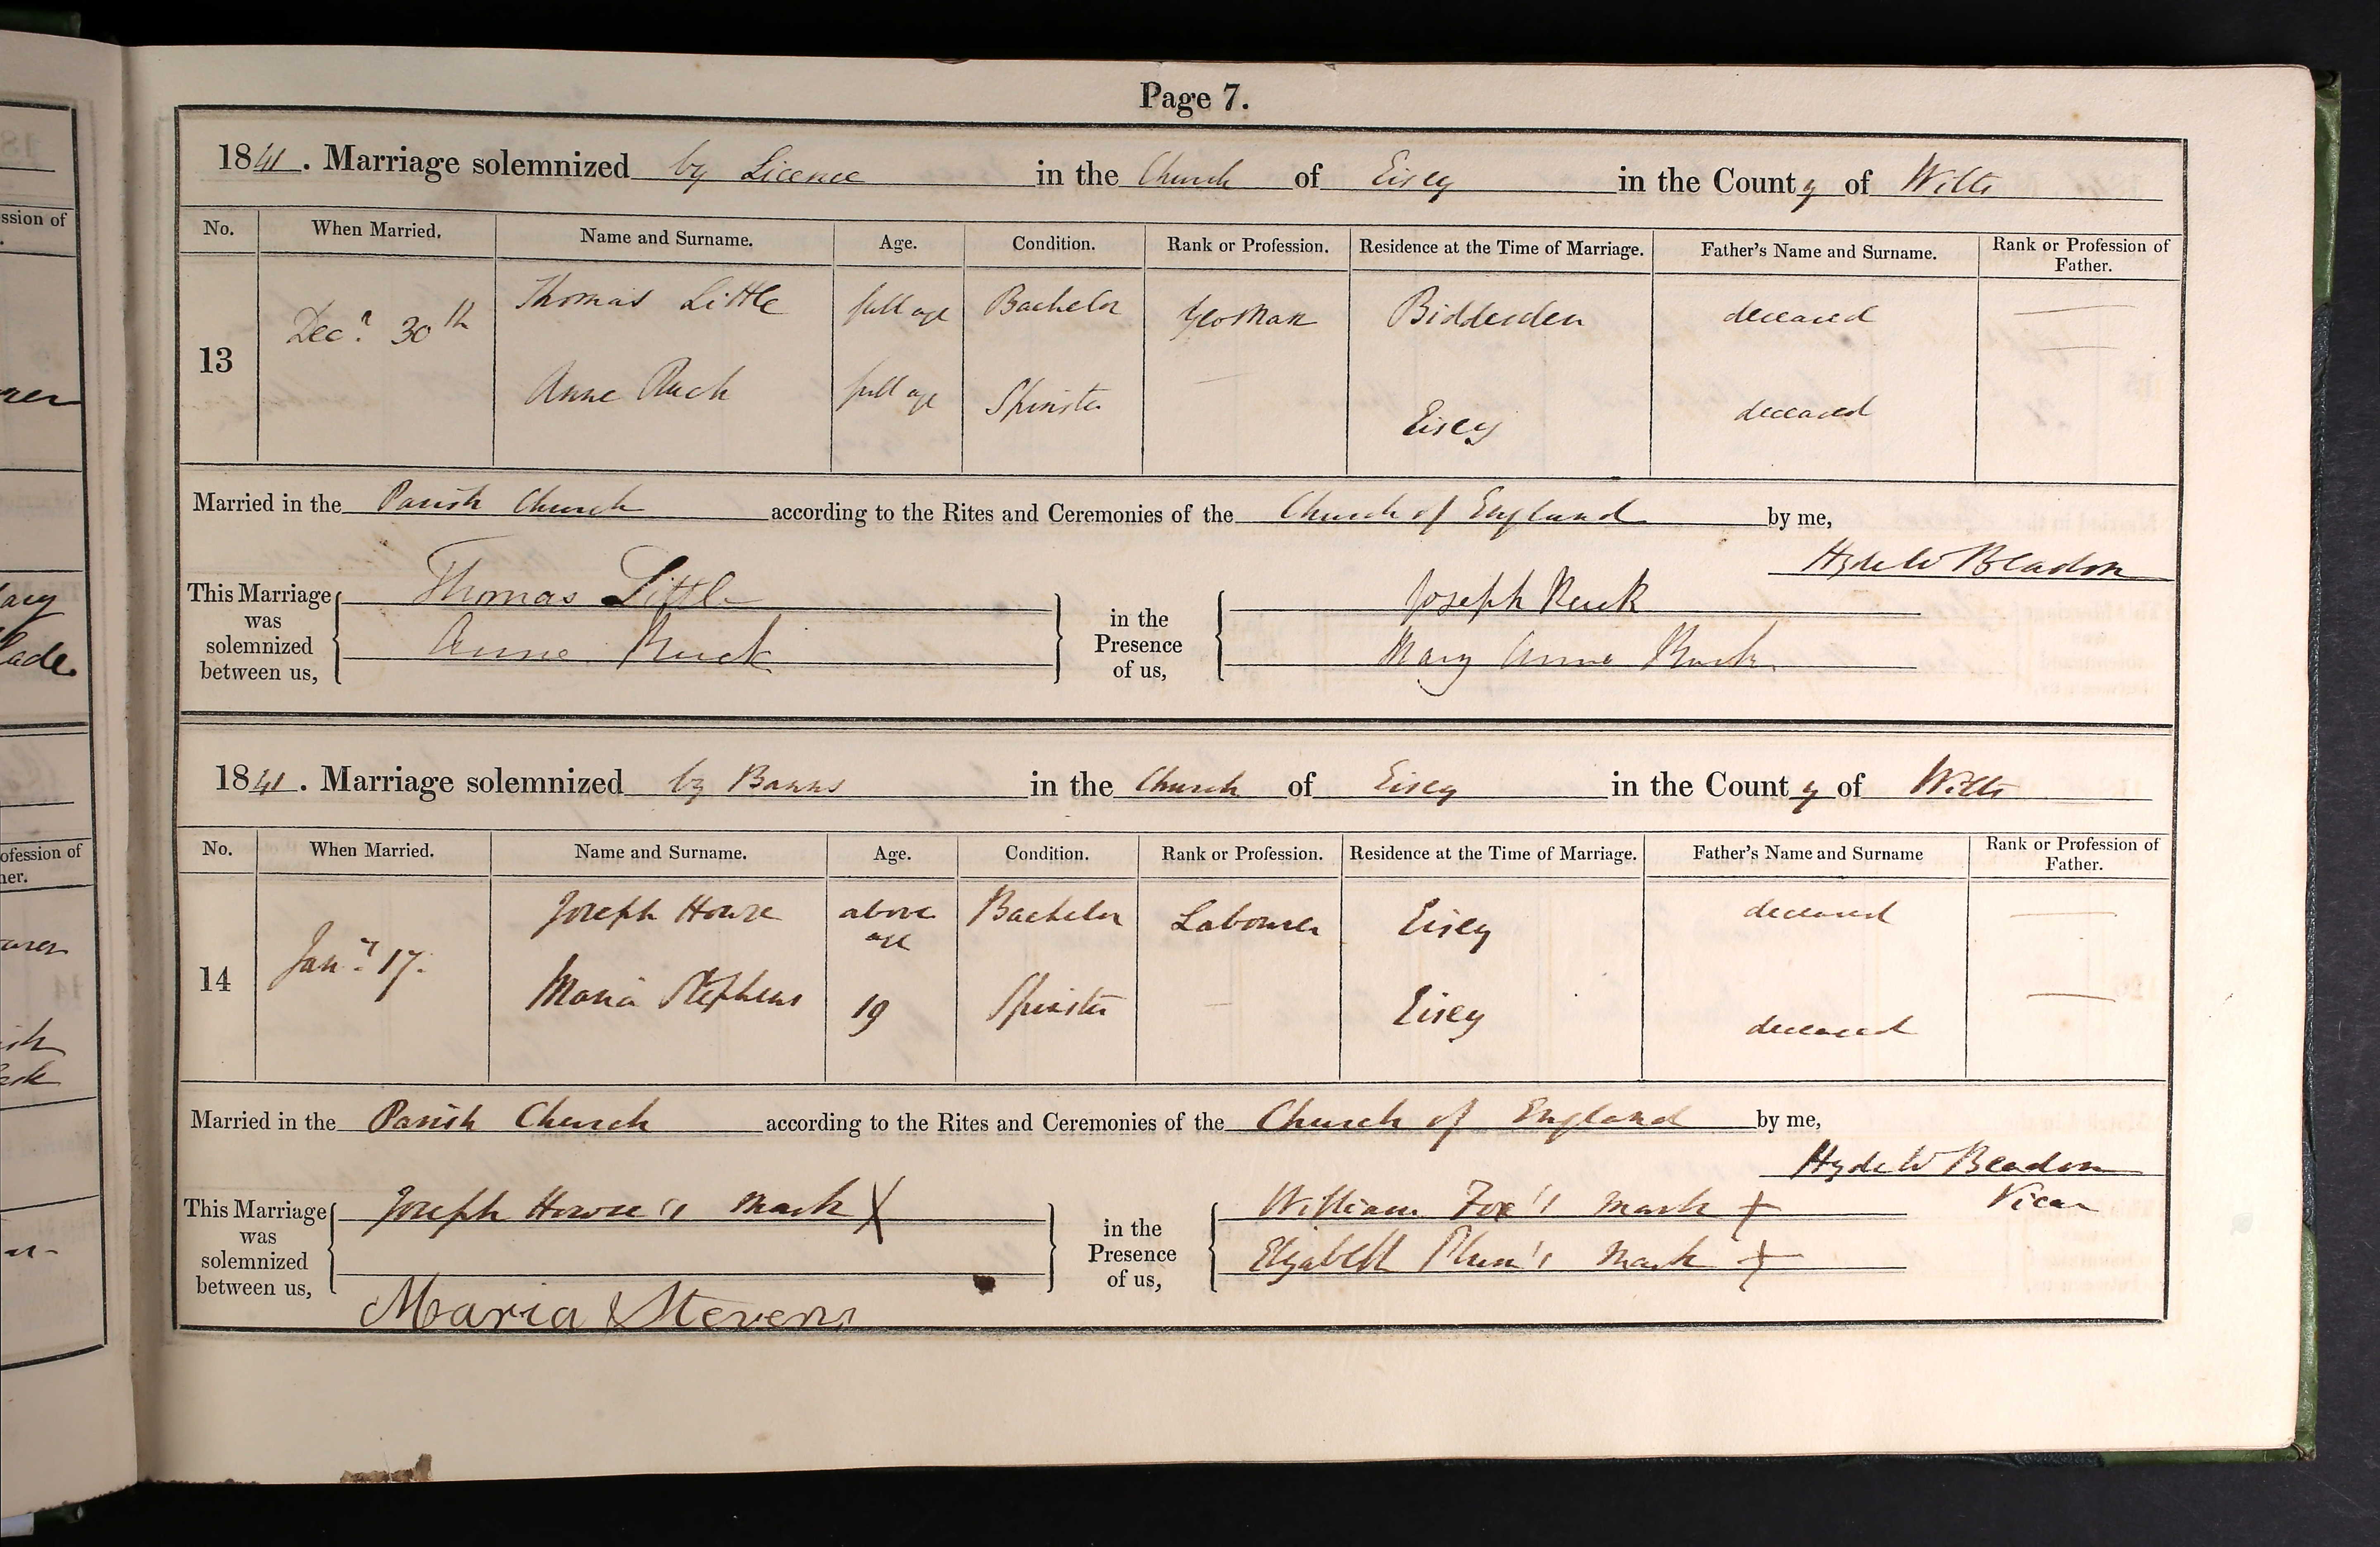 Page 7.
1841. Marriage solemnized by Licence in the Church of Eisey in the County of Wilts
No. When Married. Name and Surname. Age. Condition. Rank or Profession. Residence at the Time of Marriage. Father's Name and Surname. Rank or Profession of Father.
13 Decr 30th Thomas Little full age Bachelor Yeoman Biddesden deceased —
Anne Ruck full age Spinster — Eisey deceased —
Married in the Parish Church according to the Rites and Ceremonies of the Church of England by me,
Hyde W Beadon
This Marriage was solemnized between us, Thomas Little in the Presence of us, Joseph Ruck
Anne Ruck Mary Anne Ruck
1841. Marriage solemnized by Banns in the Church of Eisey in the County of Wilts
No. When Married. Name and Surname. Age. Condition. Rank or Profession. Residence at the Time of Marriage. Father's Name and Surname Rank or Profession of Father.
14 Jany 17. Joseph Howse above age Bachelor Labourer Eisey deceased —
Maria Stephens 19 Spinster — Eisey deceased —
Married in the Parish Church according to the Rites and Ceremonies of the Church of England by me,
Hyde W Beadon
Vicar
This Marriage was solemnized between us, Joseph Howse's mark X in the Presence of us, William Fox's mark +
Elizabeth Plum's mark +
Maria Stevens